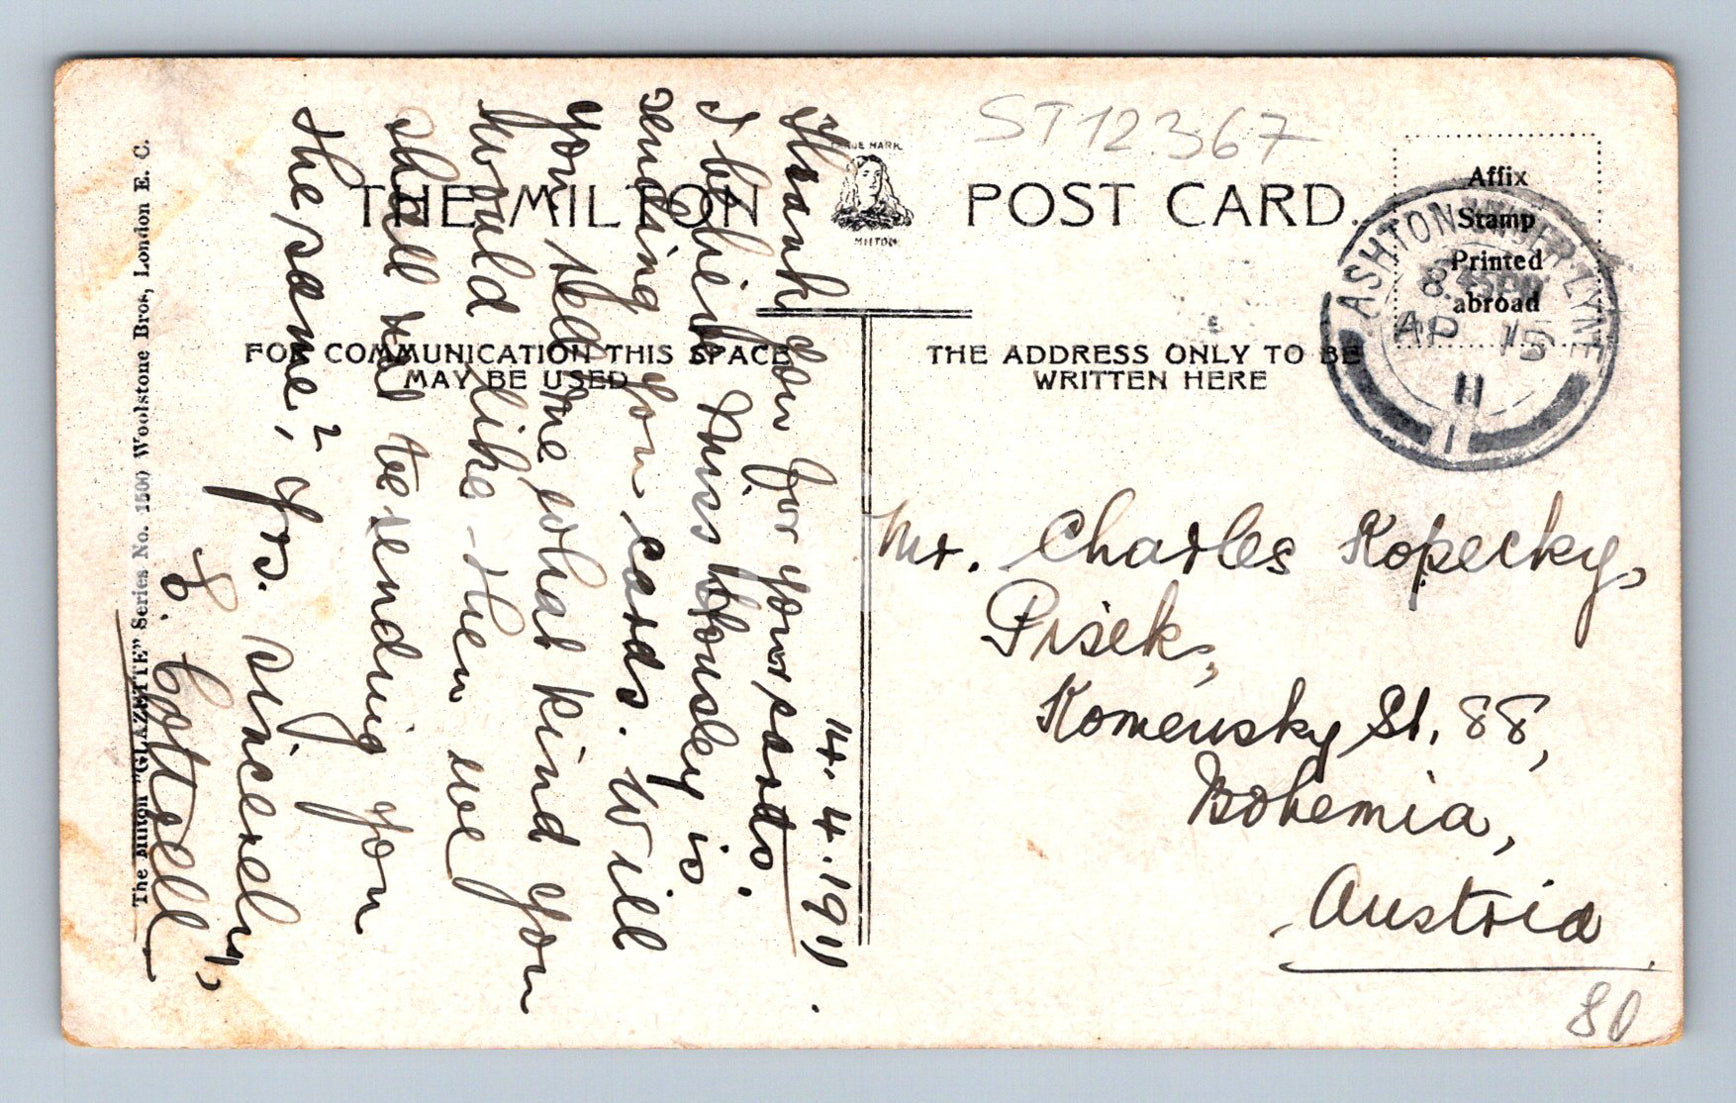 ST12367
TRADE MARK
THE MILTON POST CARD.
MILTON
Affix
Stamp
Printed
abroad
ASHTON UNDER LYNE
AP 15
11
FOR COMMUNICATION THIS SPACE
MAY BE USED
THE ADDRESS ONLY TO BE
WRITTEN HERE
14.4.1911.
Thank you for your cards.
I believe Miss Housley is
sending you cards. Will
you tell me what kind you
would like - then we
shall not be sending you
the same? Yrs. sincerely,
Cottrell
Mr. Charles Kopecky,
Pisek,
Komensky St. 88,
Bohemia,
Austria
80
The Milton "GLAZETTE" Series No. 1500 Woolstone Bros, London E. C.